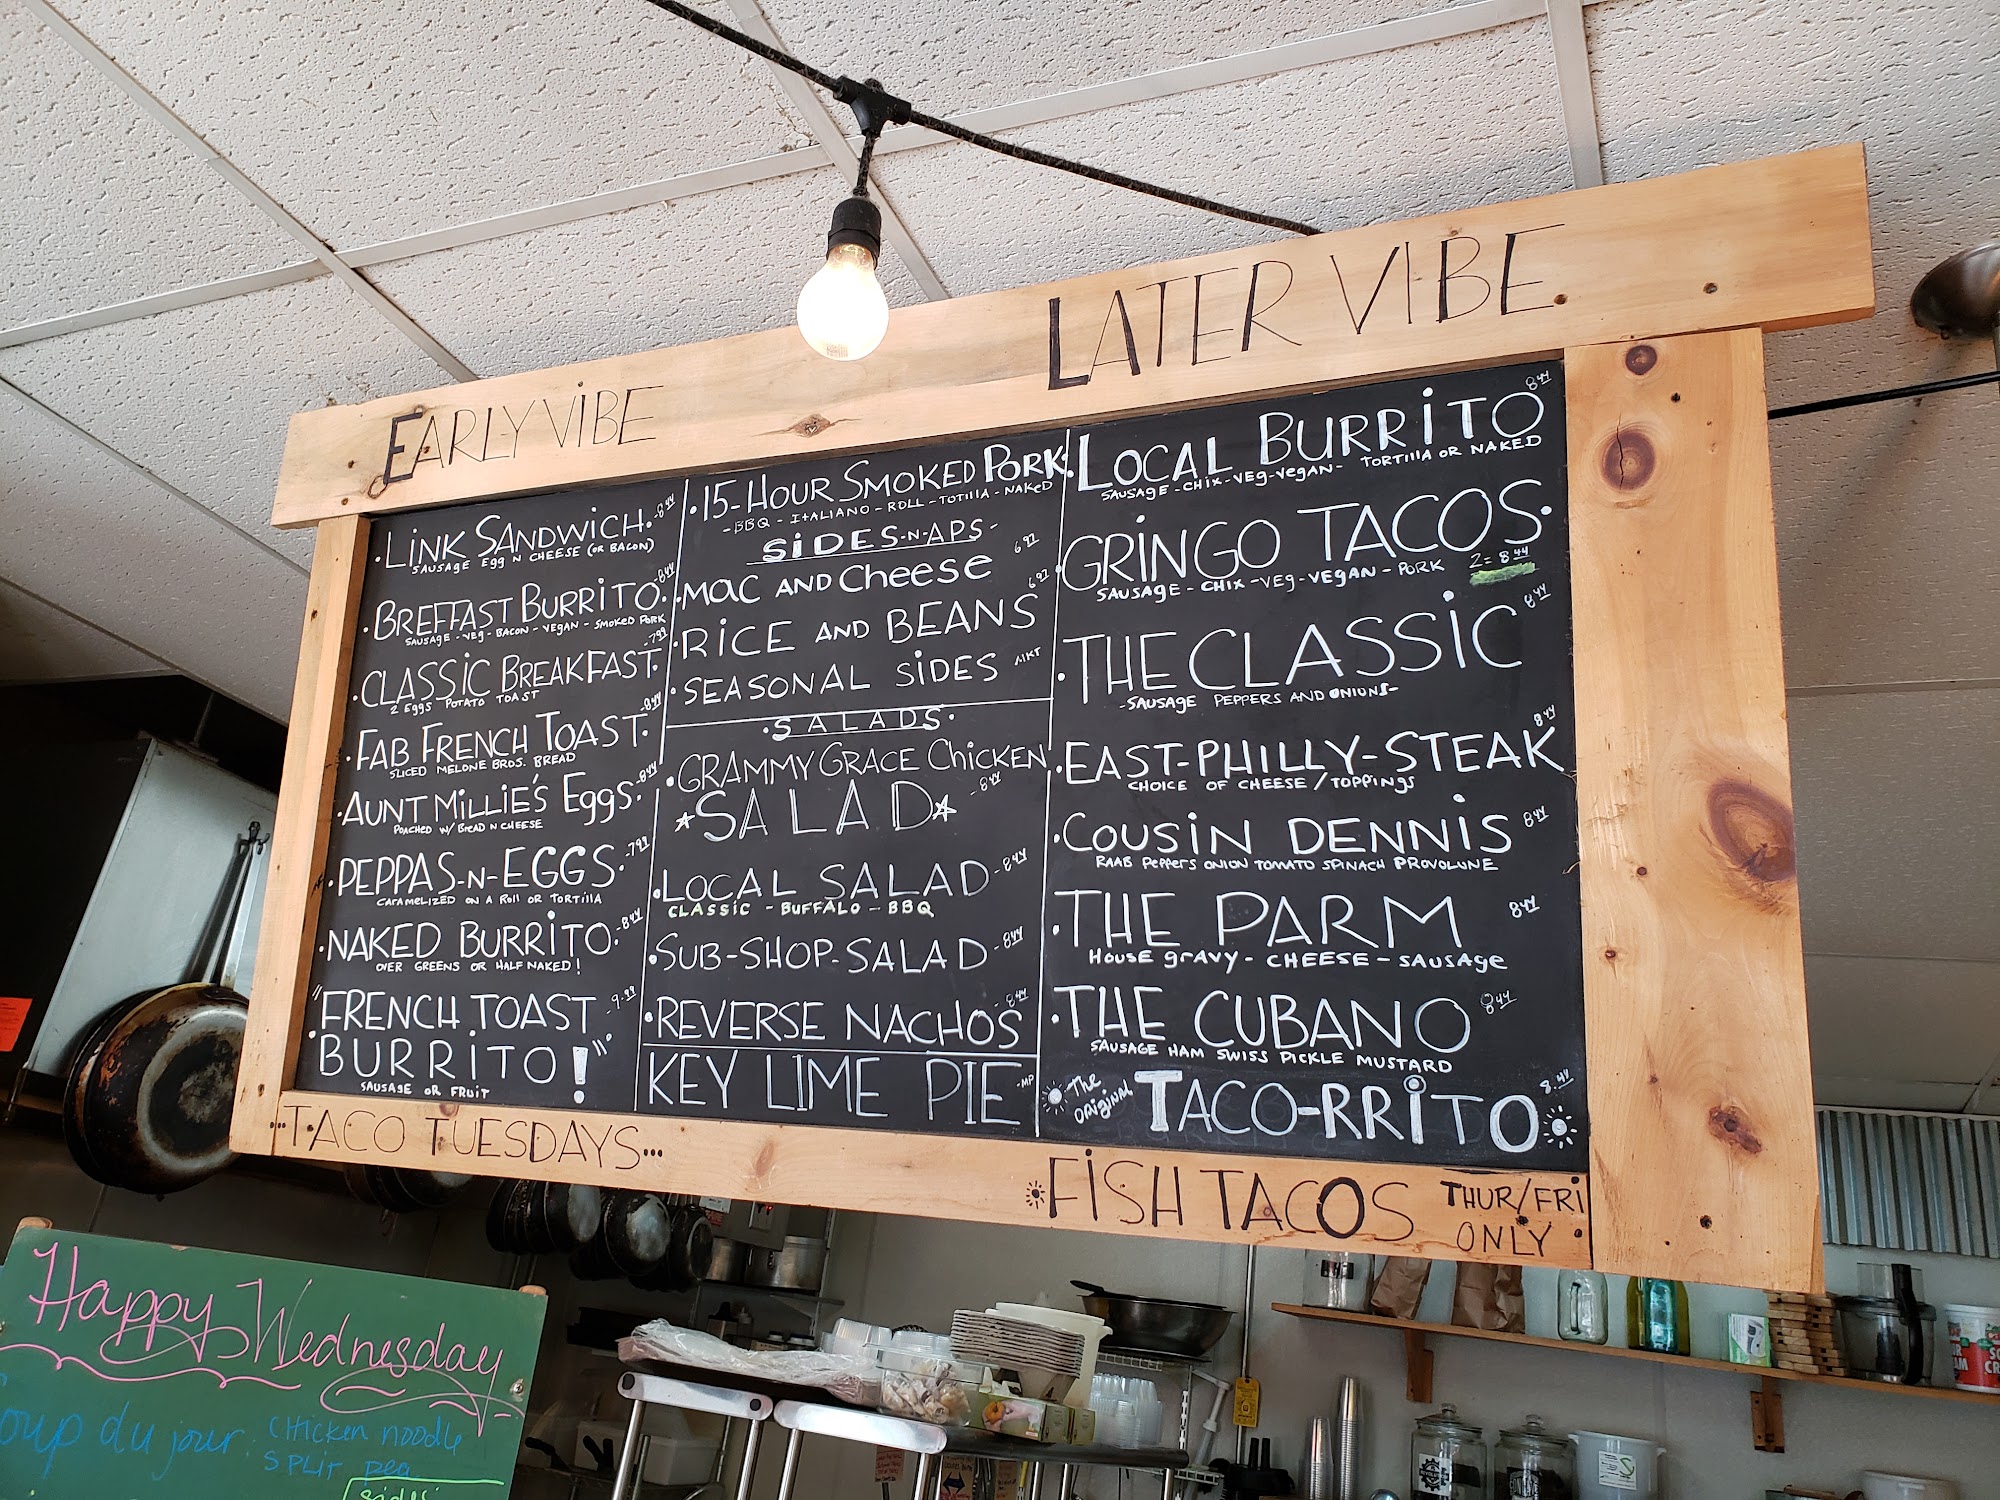 EARLY VIBE
LATER VIBE
• LINK SANDWICH. -8.44
SAUSAGE EGG N CHEESE (OR BACON)
• BREFFAST BURRITO. -8.44
SAUSAGE - VEG - BACON - VEGAN - SMOKED PORK
• CLASSIC BREAKFAST. -7.99
2 EGGS POTATO TOAST
• FAB FRENCH TOAST. -8.44
SLICED MELONE BROS. BREAD
• AUNT MILLIE'S Eggs. -8.44
POACHED W/ BREAD N CHEESE
• PEPPAS-N-EGGS. -7.99
CARAMELIZED ON A ROLL OR TORTILLA
• NAKED BURRITO. -8.44
OVER GREENS OR HALF NAKED!
• "FRENCH TOAST -9.99
BURRITO!"
SAUSAGE OR FRUIT
• 15-HOUR SMOKED PORK.
- BBQ - ITALIANO - ROLL - TOTILLA - NAKED
SIDES-N-APS-
• MAC AND CHEESE 6.97
• RICE AND BEANS 6.97
• SEASONAL SIDES MKT
• SALADS •
• GRAMMY GRACE CHICKEN
SALAD -8.44
• LOCAL SALAD -8.44
CLASSIC - BUFFALO - BBQ
• SUB-SHOP-SALAD -8.44
• REVERSE NACHOS -8.44
KEY LIME PIE -MP
• LOCAL BURRITO 8.44
SAUSAGE - CHIX - VEG - VEGAN - TORTILLA OR NAKED
• GRINGO TACOS.
SAUSAGE - CHIX - VEG - VEGAN - PORK 2= 8.44
• THE CLASSIC 8.44
-SAUSAGE PEPPERS AND ONIONS-
• EAST-PHILLY-STEAK 8.44
CHOICE OF CHEESE / TOPPINGS
• COUSIN DENNIS 8.44
RAAB PEPPERS ONION TOMATO SPINACH PROVOLONE
• THE PARM 8.44
HOUSE GRAVY - CHEESE - SAUSAGE
• THE CUBANO 8.44
SAUSAGE HAM SWISS PICKLE MUSTARD
The ORIGINAL TACO-RRITO 8.44
...TACO TUESDAYS...
FISH TACOS THUR/FRI
ONLY
Happy Wednesday
Soup du jour. CHICKEN NOODLE
SPLIT PEA
sides